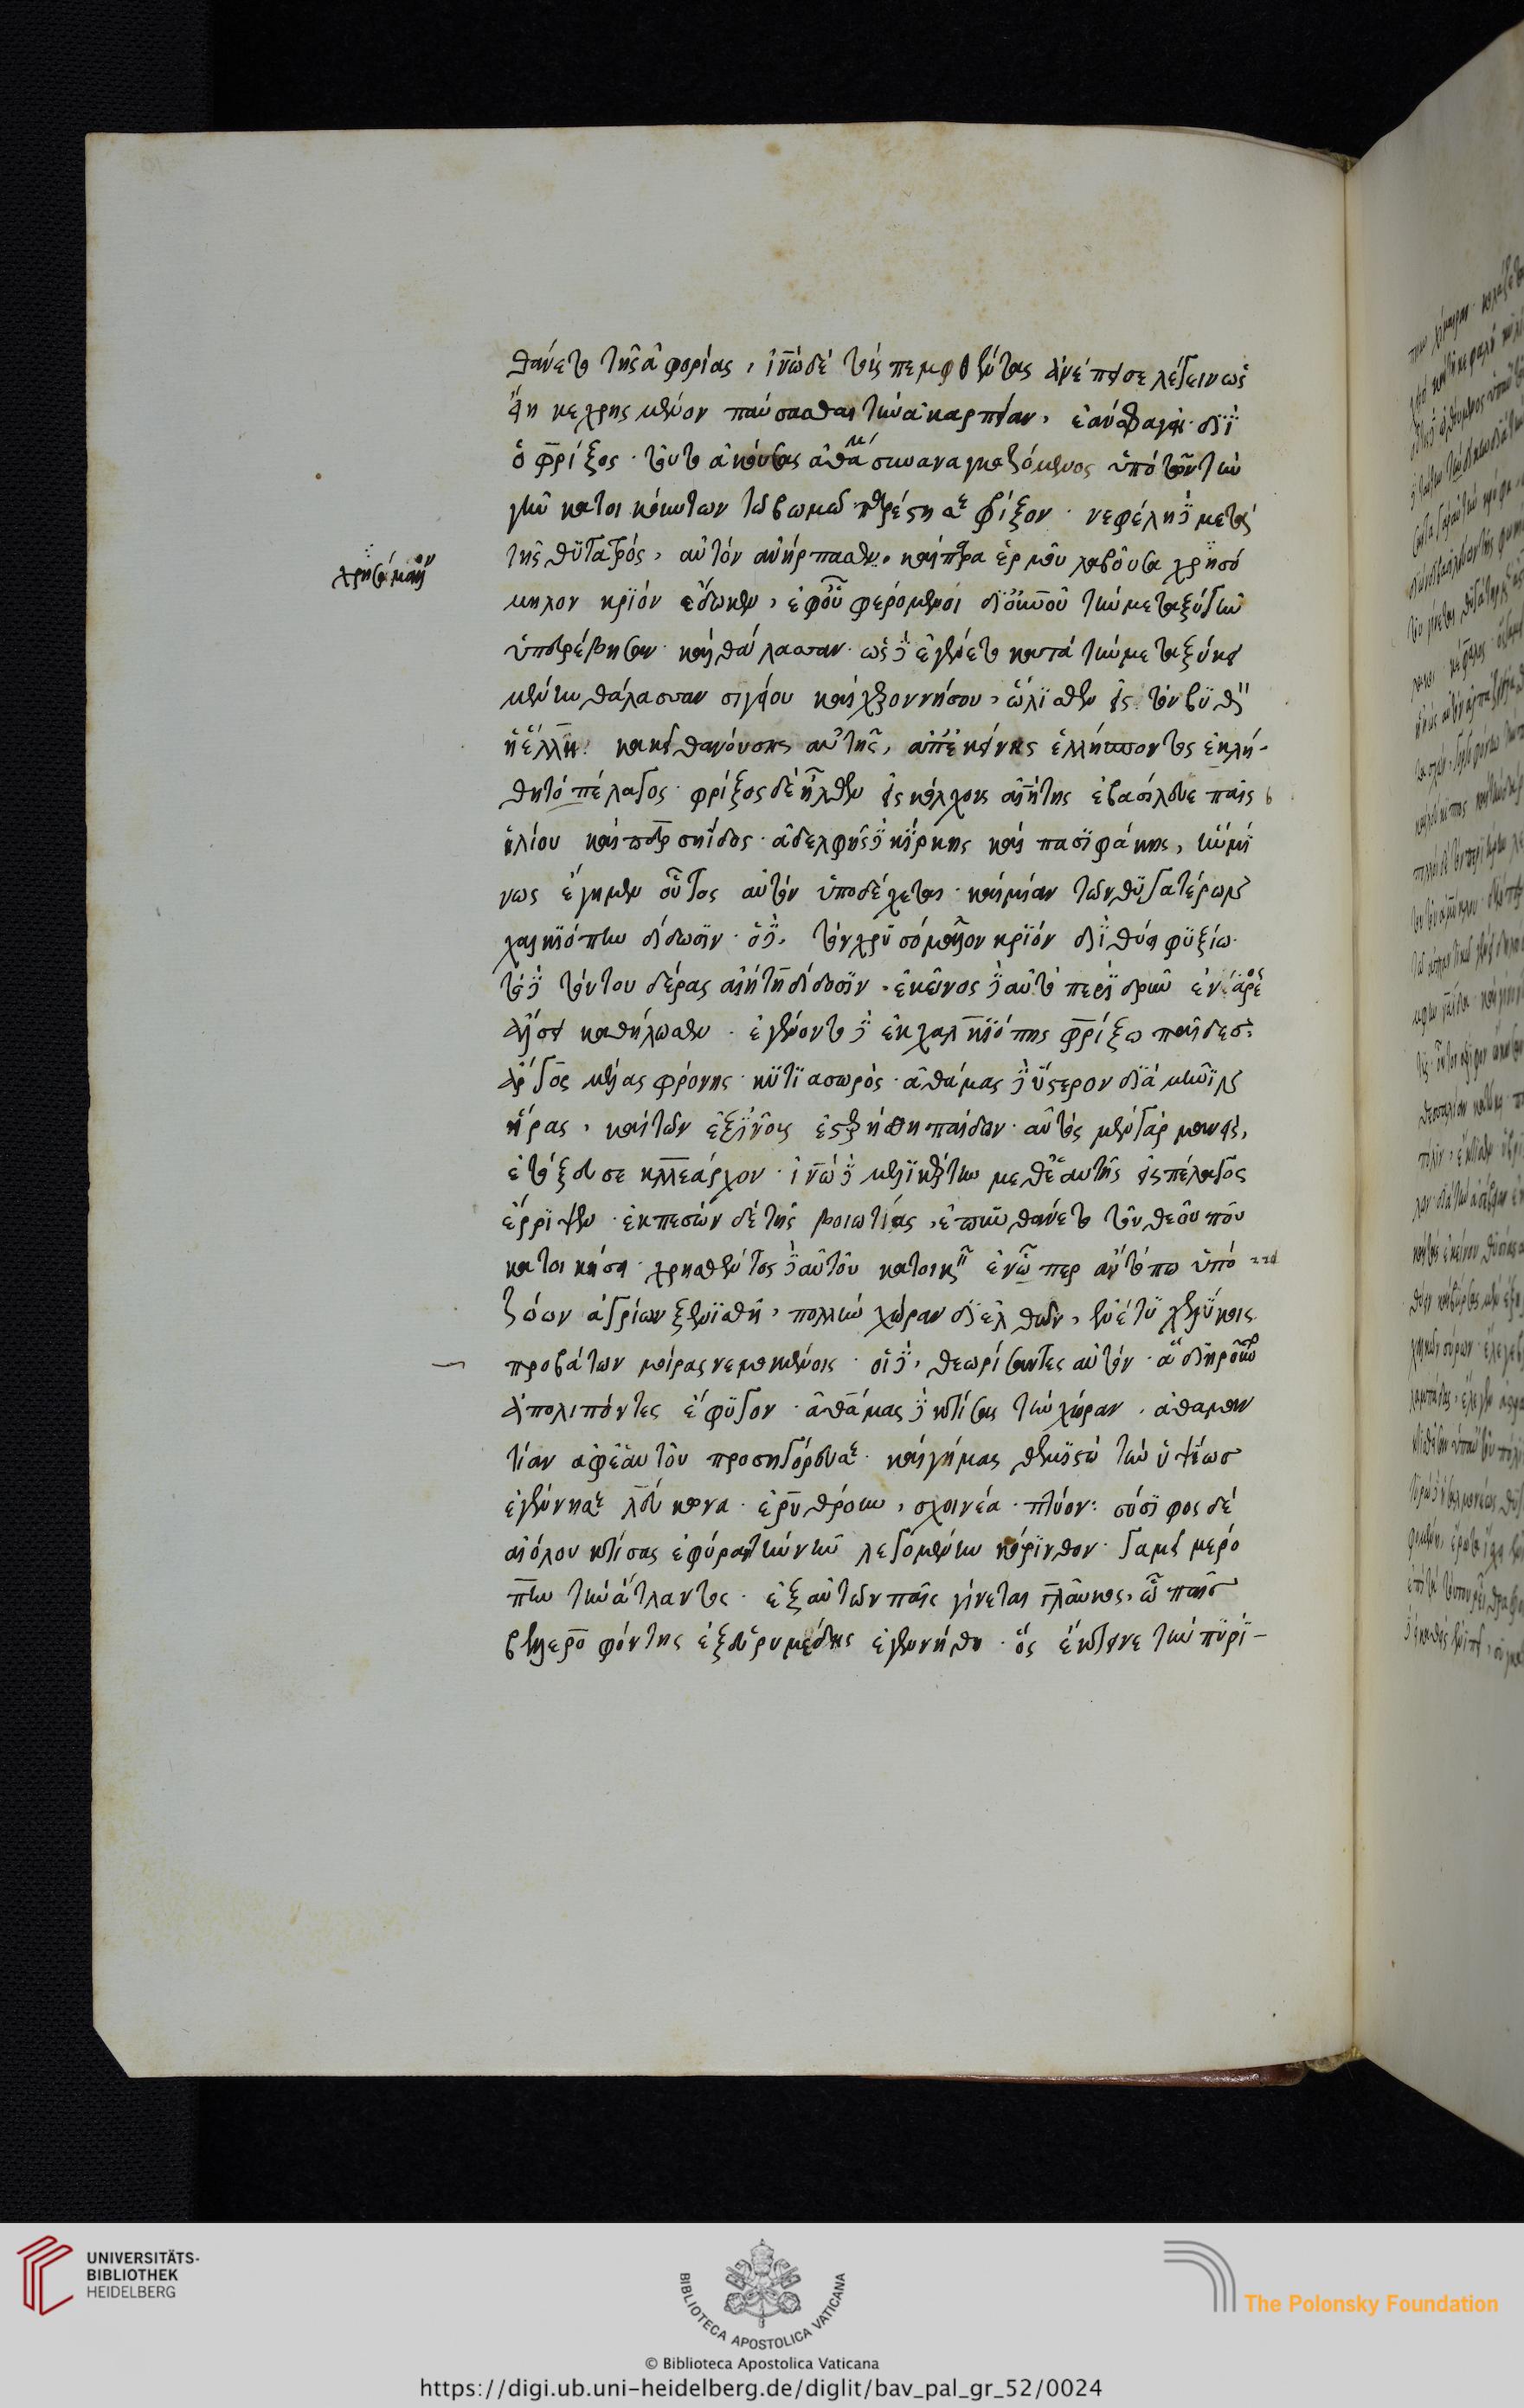 θάνετο τῆς ἀφορίας, ἰνὼ δὲ τοὺς πεμφθέντας ἀνέπεισε λέγειν ὡς
εἴη κεχρησμένον παύσασθαι τὴν ἀκαρπίαν, ἐὰν σφαγῆ διῒ
ὁ φρίξος. τοῦτο ἀκούσας ἀθάμας συναναγκαζόμενος ὑπὸ τῶν τὴν
γῆν κατοικούντων τῶ βωμῶ παρέστησε φρίξον. νεφέλη δὲ μετὰ
τῆς θυγατρός, αὐτὸν ἀνήρπασεν. καὶ παρὰ ἑρμοῦ λαβοῦσα χρυσό
μηλον κριὸν ἔδωκεν, ἐφ οὗ φερόμενοι δι οὐρανοῦ τὴν μεταξὺ γῆν
ὑπερέβησαν καὶ θάλασσαν. ὡς δὲ ἐγένετο κατὰ τὴν μεταξὺ κει
μένην θάλασσαν σιγείου καὶ χερρονήσου, ὤλισθεν εἰς τὸν βυθὸν
ἡ ἕλλη. κἀκεῖ θανούσης αὐτῆς, ἀπ ἐκείνης ἑλλήσποντος ἐκλή-
θη τὸ πέλαγος. φρίξος δὲ ἦλθεν εἰς κόλχους αἰήτης ἐβασίλευε παῖς
ἡλίου καὶ περσηίδος. ἀδελφὸς δὲ κίρκης καὶ πασιφάης, ἣν μί
νως ἔγημεν οὗτος αὐτὸν ὑποδέχεται. καὶ μίαν τῶν θυγατέρων
χαλκιόπην δίδωσιν. ὁ δὲ, τὸν χρυσόμαλλον κριὸν διῒ θύει φυξίω.
τὸ δὲ τούτου δέρας αἰήτη δίδωσιν. ἐκεῖνος δὲ αὐτὸ περὶ δρῦν ἐν ἄρε
ος ἄλσει καθήλωσεν. ἐγένοντο δὲ ἐκ χαλκιόπης φρίξω παῖδες.
ἄργος μέλας φρόνης κυτίσωρος. ἀθάμας δὲ ὕστερον διὰ μῆνιν
ἥρας, καὶ τῶν ἐξ ἰνοῦς ἐστερήθη παίδων. αὐτὸς μὲν γὰρ μανεὶς,
ἐτόξευσε κλέαρχον. ἰνὼ δὲ μελικέρτην μεθ ἑαυτῆς εἰς πέλαγος
ἔρριψεν. ἐκπεσὼν δὲ τῆς βοιωτίας, ἐπυνθάνετο τοῦ θεοῦ ποῦ
κατοικήσει. χρησθέντος δὲ αὐτοῦ κατοικεῖν ἐν ὧπερ ἂν τόπω ὑπὸ
ζώων ἀγρίων ξενισθῆ, πολλὴν χώραν διελθὼν, ἐνέτυχε λύκοις
προβάτων μοίρας νεμομένοις. οἱ δὲ, θεωρήσαντες αὐτὸν. ἃ διηροῦντο
ἀπολιπόντες ἔφυγον. ἀθάμας δὲ κτίσας τὴν χώραν, ἀθαμαν
τίαν ἀφ ἑαυτοῦ προσηγόρευσε. καὶ γήμας θεμιστὼ τὴν ὑψέως
ἐγέννησε λεύκονα. ἐρύθροην, σχοινέα. πτῶον: σύσιφος δὲ
αἰόλου κτίσας ἐφύραν τὴν νῦν λεγομένην κόρινθον. γαμεῖ μερό
πην τὴν ἄτλαντος. ἐξ αὐτῶν παῖς γίνεται γλαῦκος, ὧ παῖς
βελλεροφόντης ἐξ εὐρυμέδης ἐγεννήθη. ὃς ἔκτεινε τὴν πυρί-
χρυσόμαλλον
UNIVERSITÄTS-
BIBLIOTHEK
HEIDELBERG
BIBLIOTECA APOSTOLICA VATICANA
The Polonsky Foundation
© Biblioteca Apostolica Vaticana
https://digi.ub.uni-heidelberg.de/diglit/bav_pal_gr_52/0024